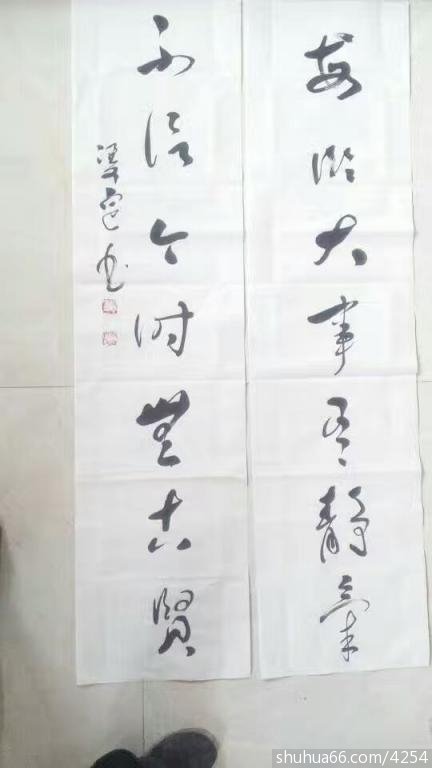 每臨大事有静氣
不信今時無古賢
shuhua66.com/4254